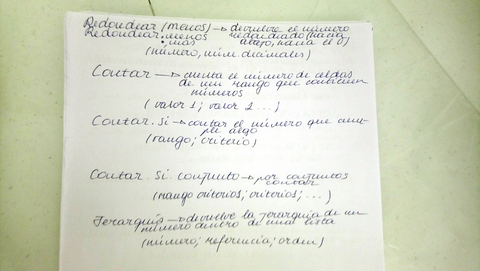 Redondear (menos) → devuelve el número
Redondear.menos redondeado (hacia
.mas abajo, hacia el 0)
(número, núm decimales)
Contar → cuenta el número de celdas
de un rango que contienen
números
(valor 1; valor 2 ...)
Contar.si → contar el número que cum-
ple algo
(rango; criterio)
Contar. Si. conjunto → por conjuntos
contar
(rango criterios; criterios; ...)
Jerarquía → devuelve la jerarquía de un
número dentro de una lista
(número; referencia; orden)